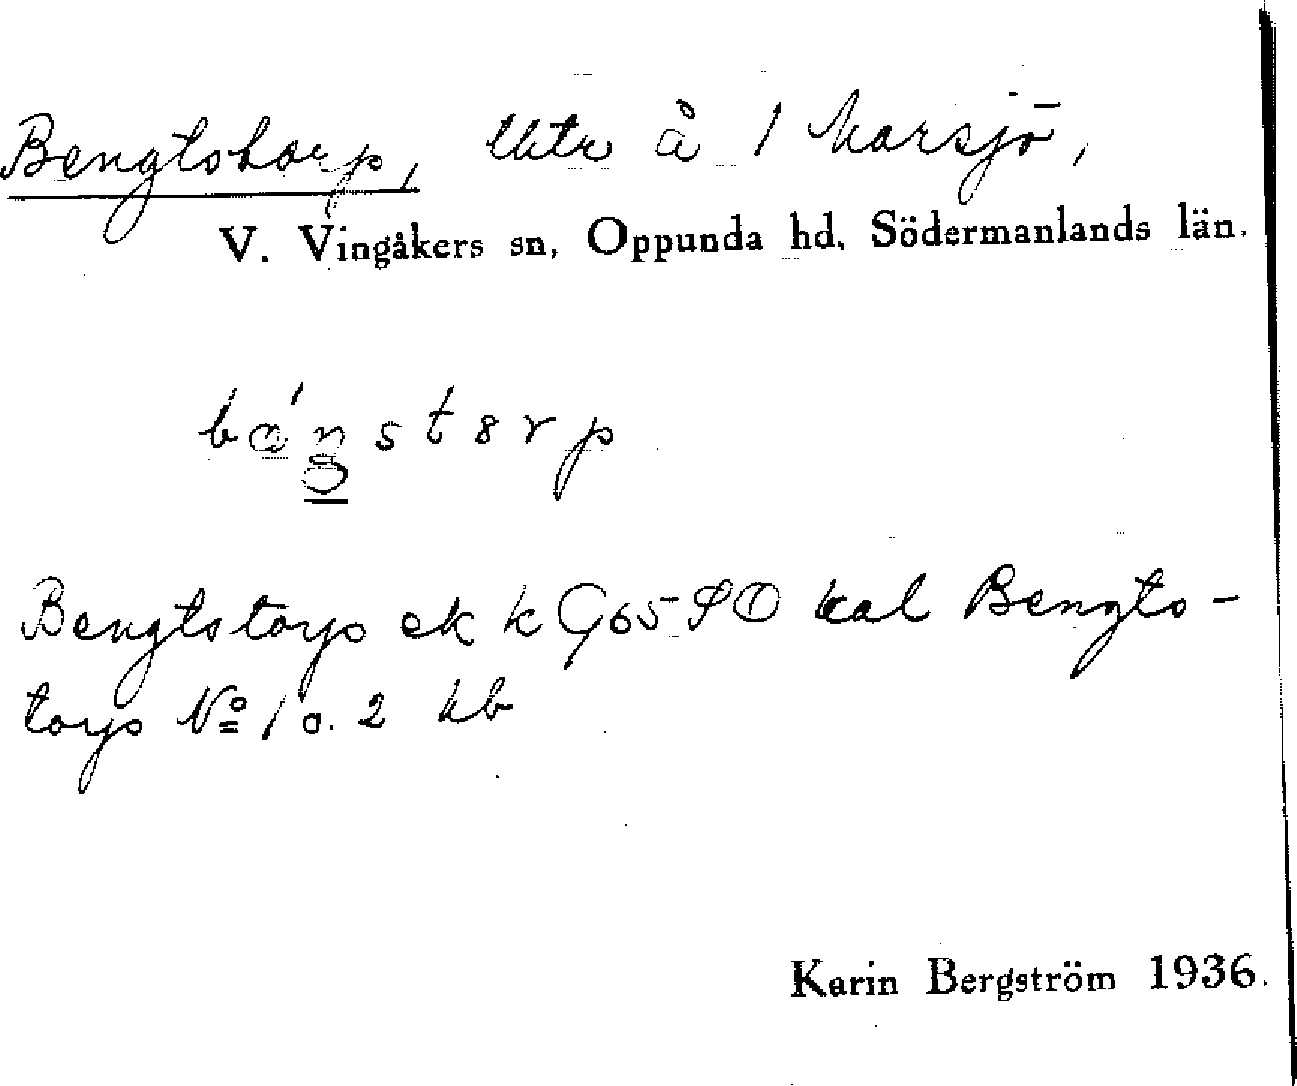 Bengtstorp, lhtr å 1 Marsjö,
V. Vingåkers sn, Oppunda hd, Södermanlands län.
bá̤ŋstɘrp
Bengtstorp ek k G65 SO kal Bengts-
torp No 1 o. 2 kb
Karin Bergström 1936.